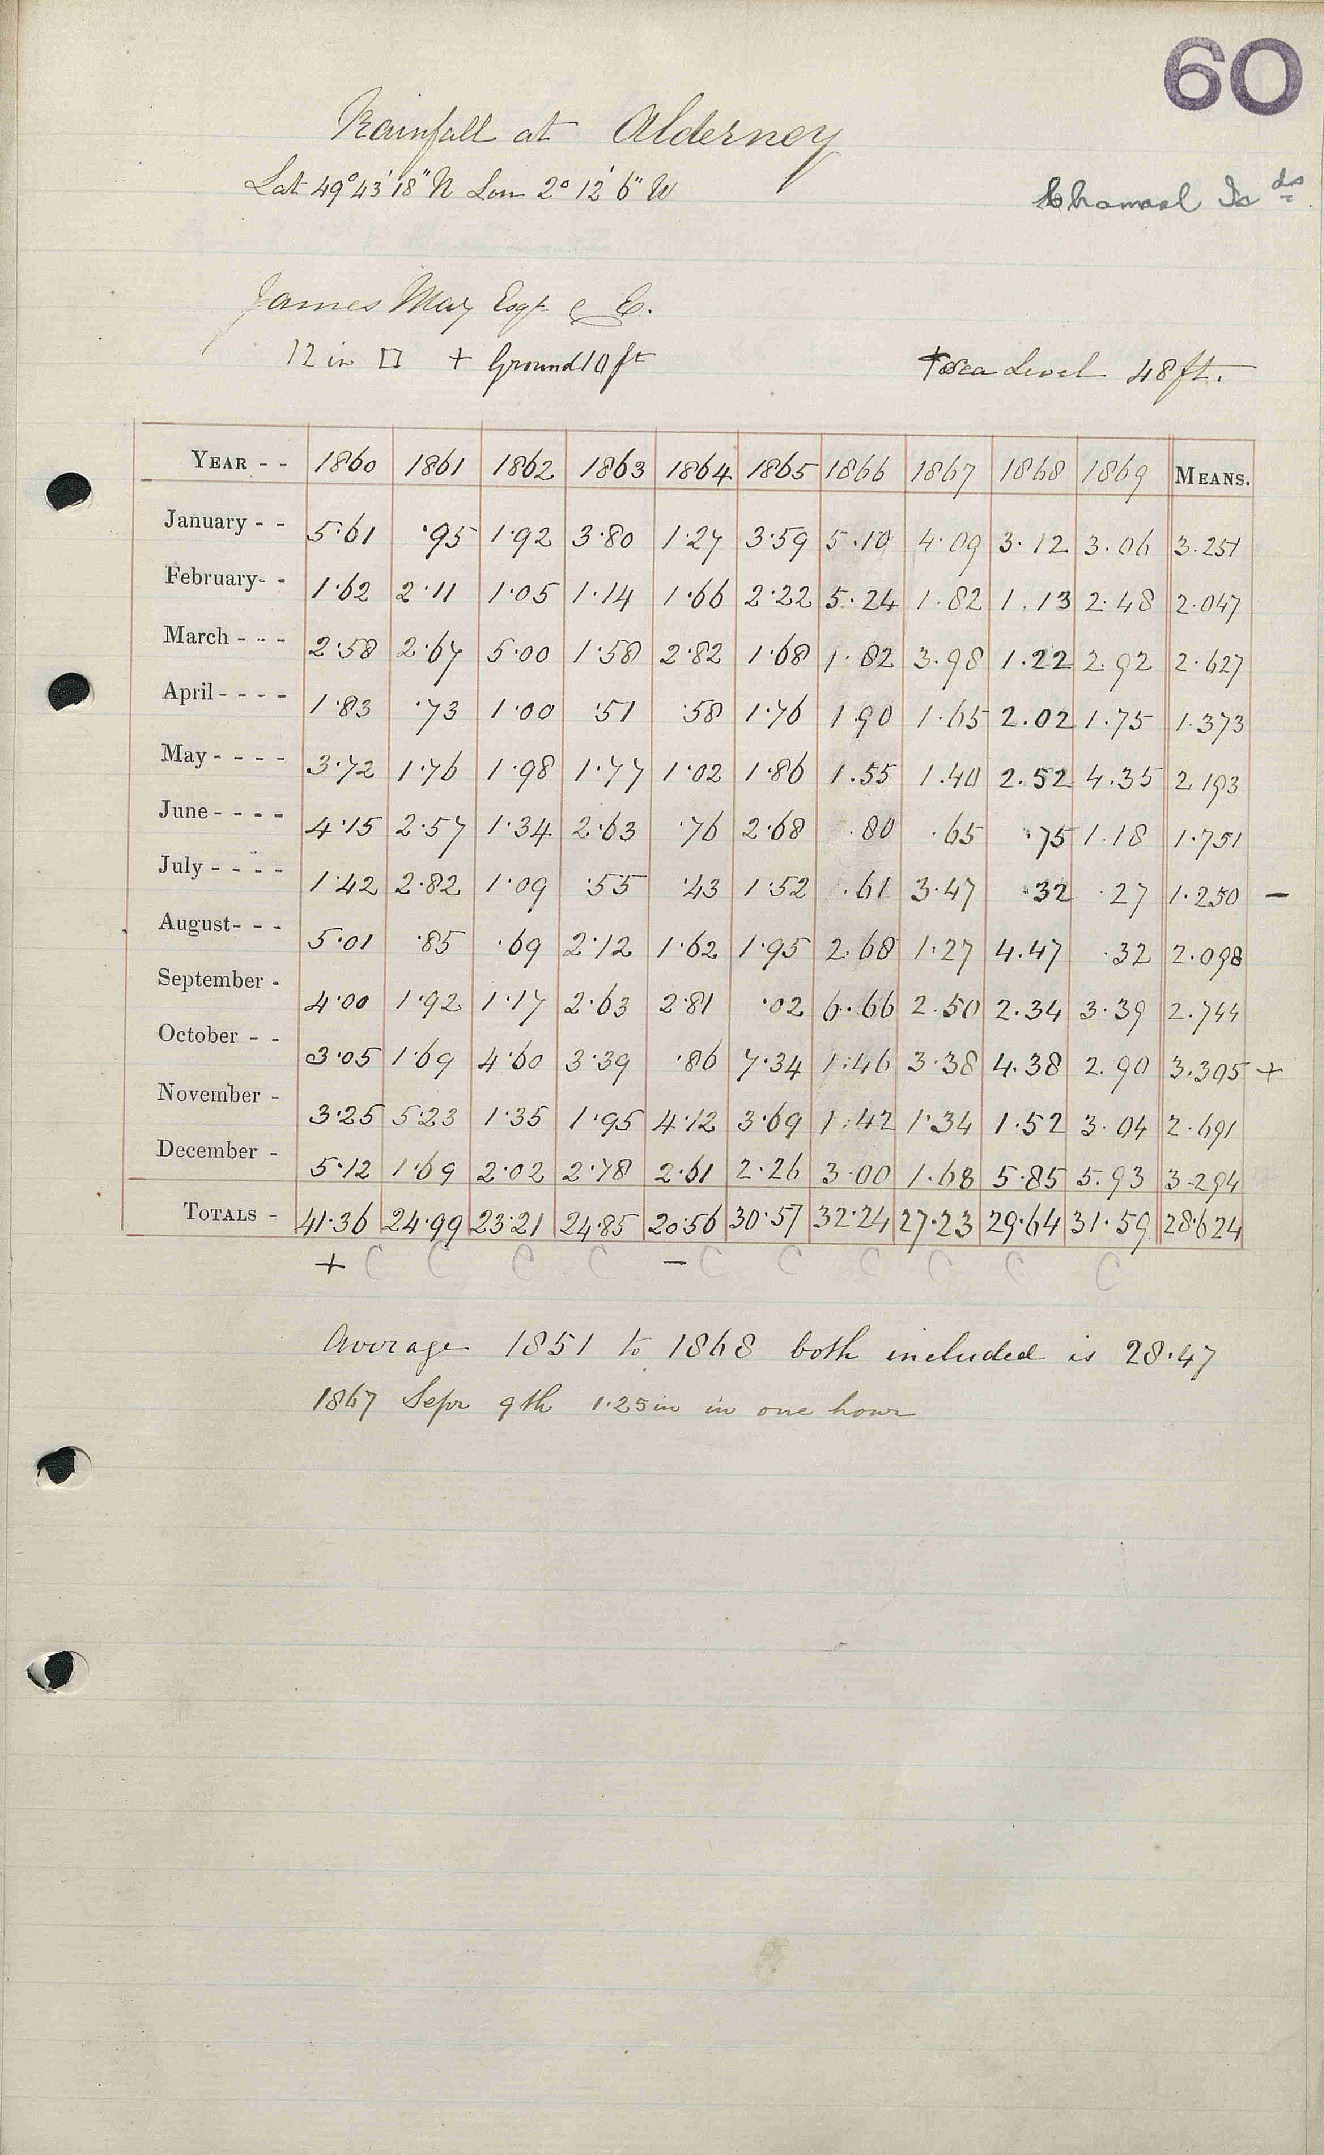 60
Rainfall at Alderney
Lat 49° 43' 18" N Lon 2° 12' 6" W
Channel Is ds
James May Esqr C E.
12 in □ + Ground 10 ft
+ Sea Level 48 ft.
YEAR - - 1860 1861 1862 1863 1864 1865 1866 1867 1868 1869 MEANS.
January - - 5·61 ·95 1·92 3·80 1·27 3·59 5.10 4.09 3.12 3.06 3.251
February- - 1·62 2·11 1·05 1·14 1·66 2·22 5.24 1.82 1.13 2.48 2.047
March - - - 2·58 2·67 5·00 1·58 2·82 1·68 1.82 3.98 1.22 2.92 2.627
April - - - - 1·83 ·73 1·00 ·51 ·58 1·76 1.90 1.65 2.02 1.75 1.373
May - - - - 3·72 1·76 1·98 1·77 1·02 1·86 1.55 1.40 2.52 4.35 2.193
June - - - - 4·15 2·57 1·34 2·63 ·76 2·68 .80 .65 .75 1.18 1.751
July - - - - 1·42 2·82 1·09 ·55 ·43 1·52 .61 3.47 .32 .27 1.250 -
August- - - 5·01 ·85 ·69 2·12 1·62 1·95 2.68 1.27 4.47 .32 2.098
September - 4·00 1·92 1·17 2·63 2·81 ·02 6.66 2.50 2.34 3.39 2.744
October - - 3·05 1·69 4·60 3·39 ·86 7·34 1.46 3.38 4.38 2.90 3.305 +
November - 3·25 5·23 1·35 1·95 4·12 3·69 1.42 1.34 1.52 3.04 2.691
December - 5·12 1·69 2·02 2·78 2·61 2·26 3.00 1.68 5.85 5.93 3.294
TOTALS - 41·36 24·99 23·21 24·85 20·56 30·57 32·24 27·23 29·64 31·59 28·624
+ C C C C - C C C C C C
Average 1851 to 1868 both included is 28.47
1867 Sepr 9th 1.25 in in one hour